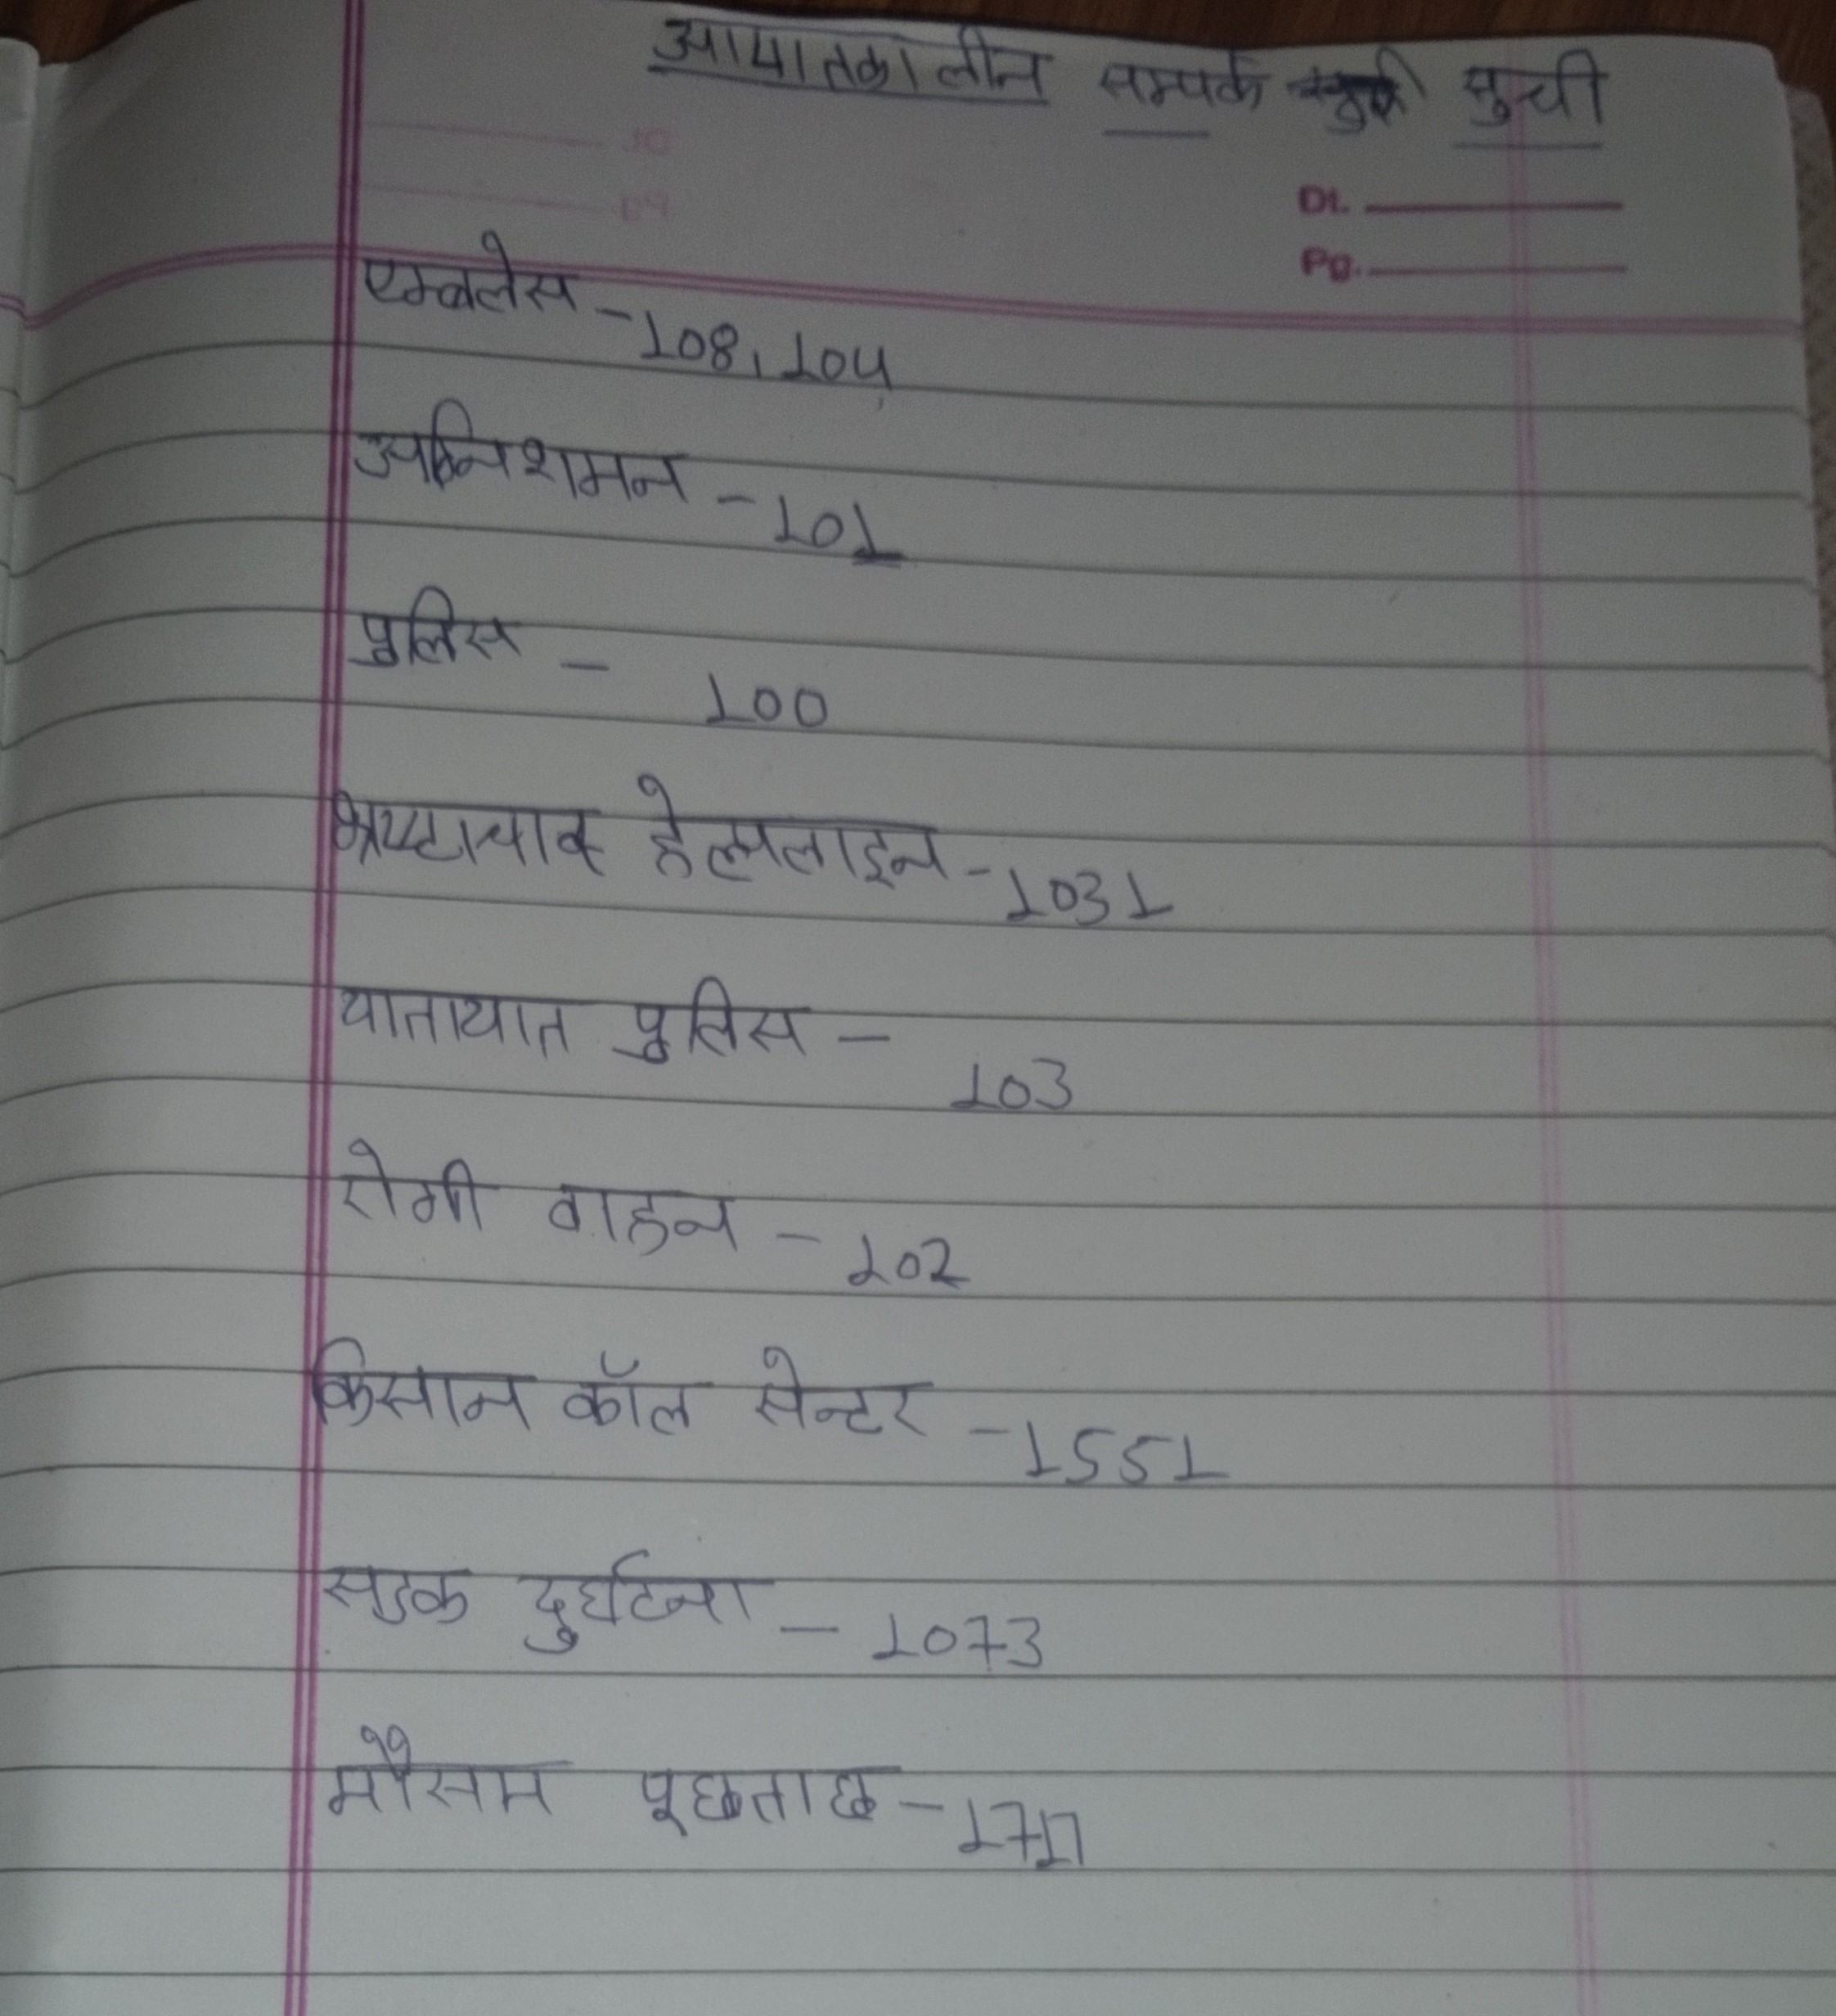 आपातकालीन सम्पर्क सुची
Dt.
Pg.
एम्बलेस - 108, 104
अग्निशमन - 101
पुलिस - 100
भ्रष्टाचार हेल्पलाइन - 1031
यातायात पुलिस - 103
रोगी वाहन - 102
किसान कॉल सेन्टर - 1551
सडक दुर्घटना - 1073
मौसम पूछताछ - 1717